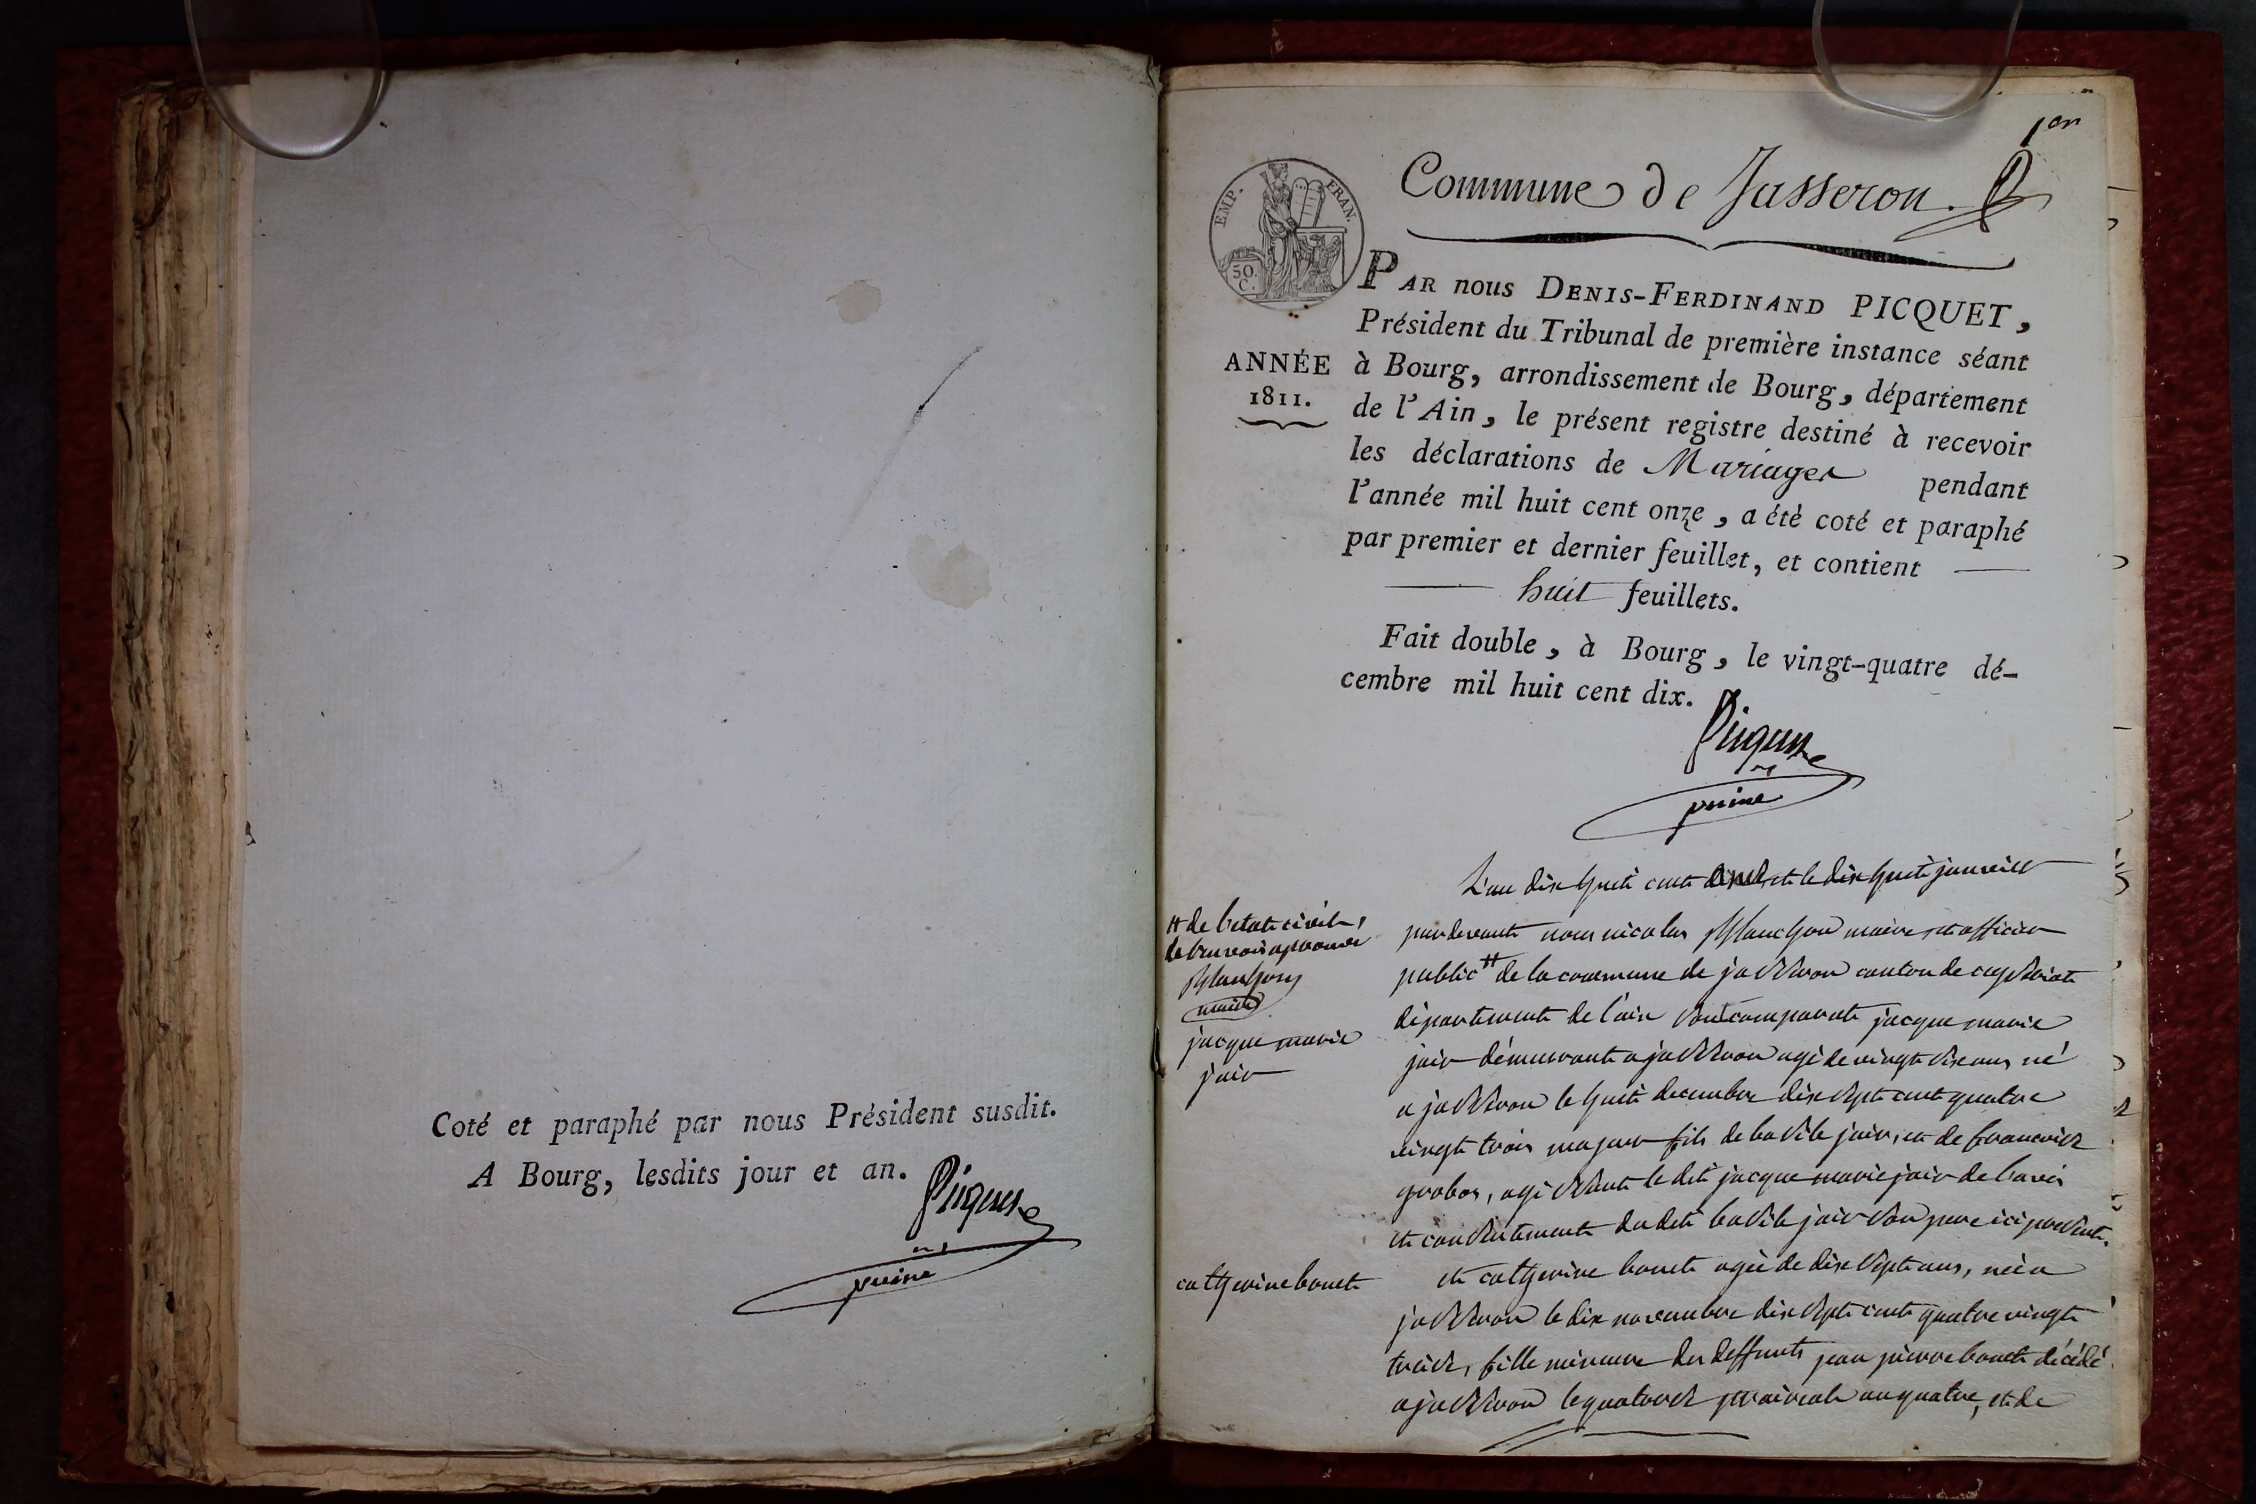 Coté et paraphé par nous Président susdit.
A Bourg, lesdits jour et an.
Picquet
1er
Commune de Jasseron.
EMP. FRAN.
50.
C.
PAR nous DENIS-FERDINAND PICQUET,
Président du Tribunal de première instance séant
ANNÉE
1811.
à Bourg, arrondissement de Bourg, département
de l'Ain, le présent registre destiné à recevoir
les déclarations de Mariages pendant
l'année mil huit cent onze, a été coté et paraphé
par premier et dernier feuillet, et contient
huit feuillets.
Fait double, à Bourg, le vingt-quatre dé-
cembre mil huit cent dix.
Picquet
L'an dix huit cent et le dix huit janvier
# de l'etat civil,
le renvoi approuvé
maire
jacque marie
jair
catherine bouet
pardevant nous nicolas maire et officier
public # de la commune de jasseron canton de ceyseriat
département de l'ain sont comparut jacque marie
jair démeurant a jasseron agé de vingt six ans né
a jasseron le huit decembre dix sept cent quatre
vingt trois majeur fils de basile jair, et de francoise
grobos, agissant le dit jacque marie jair de l'avis
et consentement du dit basile jair son pere ici present.
et catherine bouet agée de dix sept ans, née a
jasseron le dix novembre dix sept cent quatre vingt
treize, fille mineure des deffunts jean pierre bouet décédé
a jasseron le quatorze prairial an quatre, et de